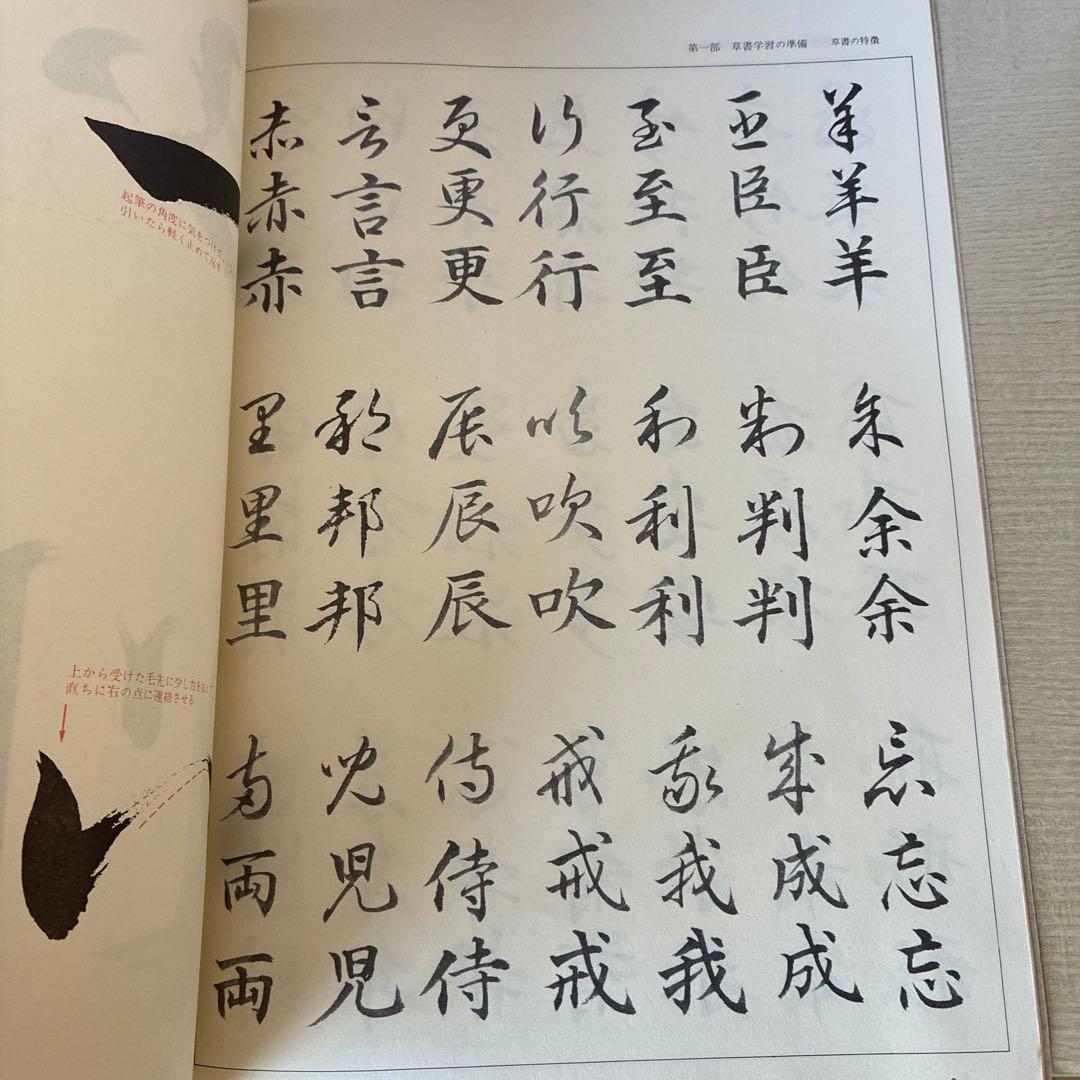 第一部 草書学習の準備 草書の特徴
羊羊羊
臣臣臣
至至至
行行行
更更更
言言言
赤赤赤
余余余
判判判
利利利
吹吹吹
辰辰辰
邦邦邦
里里里
忘忘忘
成成成
我我我
戒戒戒
侍侍侍
児児児
両両両
起筆の角度に気をつけて
引いたら軽く止めて
上から受けた毛先に少し力を
直ちに右の点に連絡させる